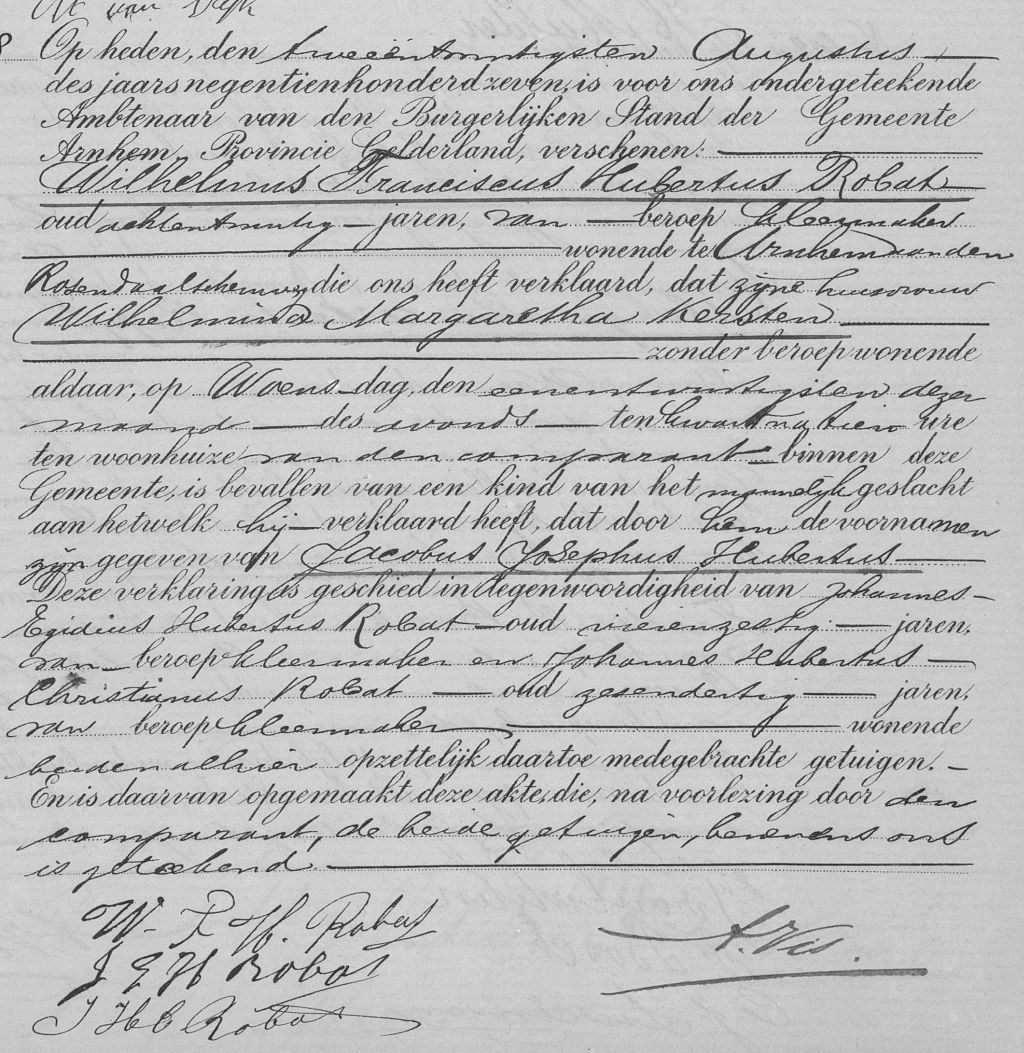 van Dijk
8 Op heden, den tweeëntwintigsten Augustus
des jaars negentienhonderd zeven, is voor ons ondergeteekende
Ambtenaar van den Burgerlijken Stand der Gemeente
Arnhem, Provincie Gelderland, verschenen:
Wilhelmus Franciscus Hubertus Robat
oud achtentwintig jaren, van beroep kleermaker
wonende te Arnhem aan den
Rosendaalschenweg die ons heeft verklaard, dat zijne huisvrouw
Wilhelmina Margaretha Kersten
zonder beroep wonende
aldaar, op Woensdag, den eenentwintigsten dezer
maand des avonds ten kwart na tien ure
ten woonhuize van den comparant binnen deze
Gemeente, is bevallen van een kind van het mannelijk geslacht
aan hetwelk hij verklaard heeft, dat door hem de voornamen
zijn gegeven van Jacobus Josephus Hubertus
Deze verklaring is geschied in tegenwoordigheid van Johannes
Egidius Hubertus Robat oud vierenzestig jaren,
van beroep kleermaker en Johannes Hubertus
Christianus Robat oud zesendertig jaren,
van beroep kleermaker wonende
beiden alhier opzettelijk daartoe medegebrachte getuigen.
En is daarvan opgemaakt deze akte, die, na voorlezing door den
comparant, de beide getuigen, benevens ons
is geteekend.
W. F. H. Robat
J E H Robat
J H C Robat
A. Vis.